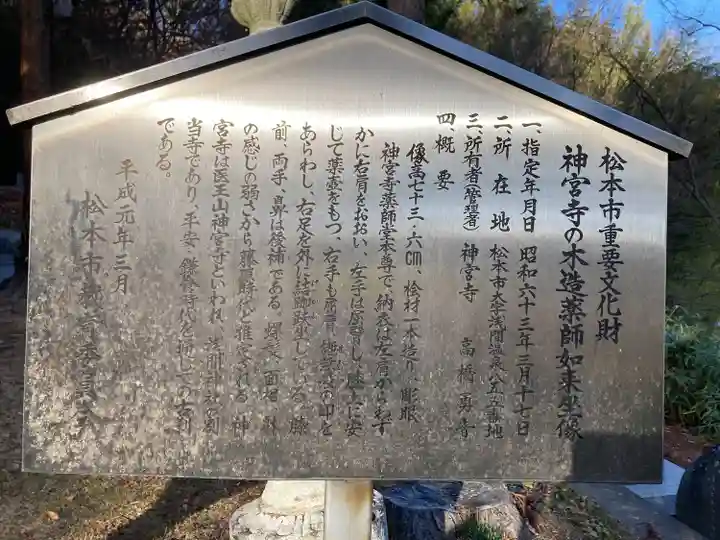 松本市重要文化財
神宮寺の木造薬師如来坐像
一、指定年月日 昭和六十三年三月十七日
二、所在地 松本市大字浅間温泉 番地
三、所有者(管理者) 神宮寺 高橋勇音
四、概要
像高七十三・六cm、桧材一木造り、彫眼、
神宮寺薬師堂本尊で、納衣は左肩から
かに右肩をおおい、左手は 膝上に安
じて薬壺をもつ、右手も の印を
あらわし、右足を外に結跏趺坐している。膝
前、両手、鼻は後補である。 面相
の感じの弱さから藤原時代と推定される。神
宮寺は医王山神宮寺といわれ、 神社の別
当寺であり、平安、鎌倉時代を通しての古刹
である。
平成元年三月
松本市教育委員会